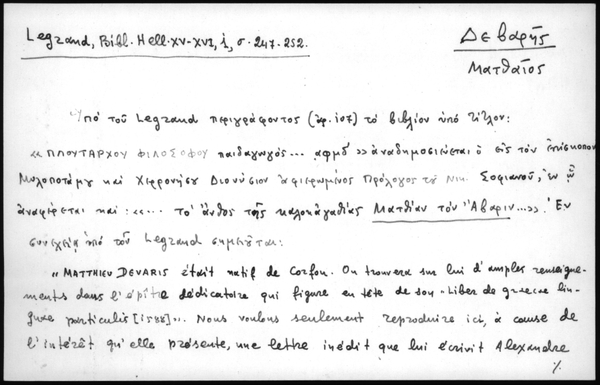 Legrand, Bibl. Hell. XV-XVI, i, σ. 247-252.
Δεβαρῆς
Ματθαῖος
Ὑπό τοῦ Legrand περιγράφοντος (ἀρ. 107) τό βιβλίον ὑπό τίτλον:
« ΠΛΟΥΤΑΡΧΟΥ ΦΙΛΟΣΟΦΟΥ παιδαγωγός... αφμδ´ » ἀναδημοσιεύεται ὁ εἰς τόν ἐπίσκοπον
Μυλοποτάμου καί Χερρονήσου Διονύσιον ἀφιερωμένος Πρόλογος τοῦ Νικ. Σοφιανοῦ, ἐν ᾧ
ἀναφέρεται καί: «... τό ἄνθος τῆς καλοκἀγαθίας Ματθίαν τόν Ἄβαριν...». Ἐν
συνεχείᾳ ὑπό τοῦ Legrand σημειοῦται:
« MATTHIEU DEVARIS était natif de Corfou. On trouvera sur lui d'amples renseigne-
ments dans l'épître dédicatoire qui figure en tête de son «Liber de graecae lin-
guae particulis [1588]»... Nous voulons seulement reproduire ici, à cause de
l'intérêt qu'elle présente, une lettre inédit que lui écrivit Alexandre
./.